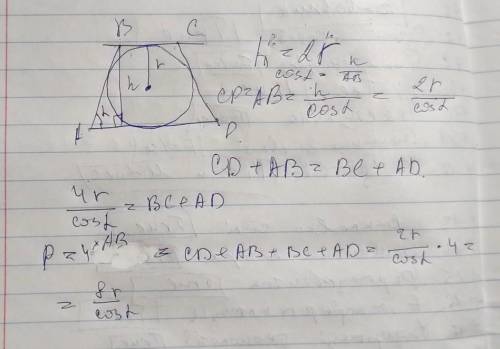 B C
r
h
α
A D
h = 2r
cosα = h/AB
CD = AB = h/cosα = 2r/cosα
CD + AB = BC + AD.
4r/cosα = BC + AD
P = 4·AB = CD + AB + BC + AD = 2r/cosα · 4 =
= 8r/cosα